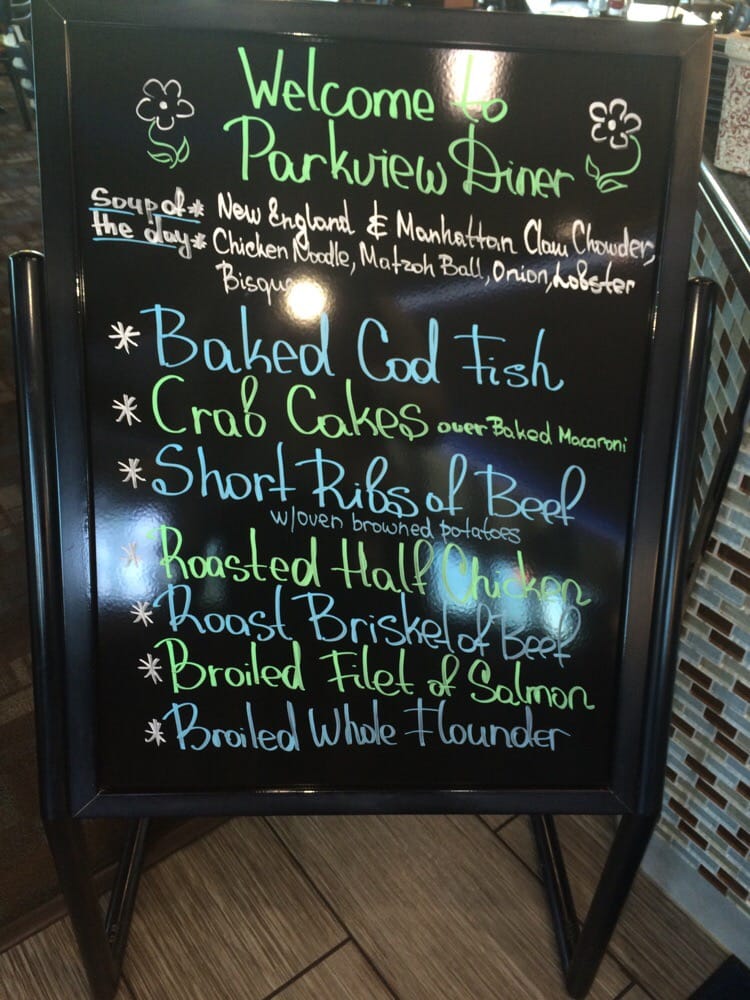 Welcome to
Parkview Diner
Soup of * New England & Manhattan Clam Chowder,
the day * Chicken Noodle, Matzoh Ball, Onion, Lobster
Bisque
* Baked Cod Fish
* Crab Cakes over Baked Macaroni
* Short Ribs of Beef
w/oven browned potatoes
* Roasted Half Chicken
* Roast Brisket of Beef
* Broiled Filet of Salmon
* Broiled Whole Flounder